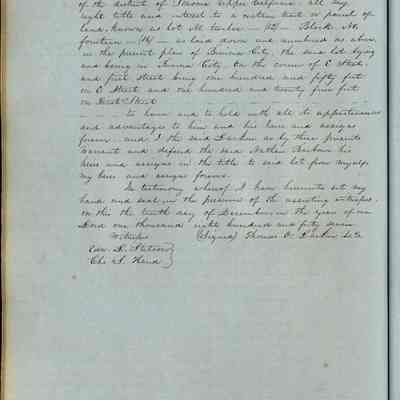 of the district of Sonoma upper California, all my
right title and interest to a certain tract or parcel of
land, known as lot No twelve — 12 — Block No
fourteen — 14 — as laid down and numbered as above
in the present plan of Benicia City, the said lot lying
and being in Benicia City, on the corner of C Street
and first Street being one hundred and fifty feet
on C Street and one hundred and twenty five feet
on First Street
to have and to hold with all its appurtenances
and advantages to him and his heirs and assigns
forever and I the said Larkin do by these presents
warrant and defend the said Nathan Barbour his
heirs and assigns in the title to said lot from myself,
my heirs and assigns forever.
In testimony whereof I have hereunto set my
hand and seal in the presence of the assisting witnesses
on this the tenth day of December in the year of our
Lord one thousand eight hundred and forty seven
Witness (Signed) Thomas O. Larkin
Edw. R. Stetson
Chs S. Head